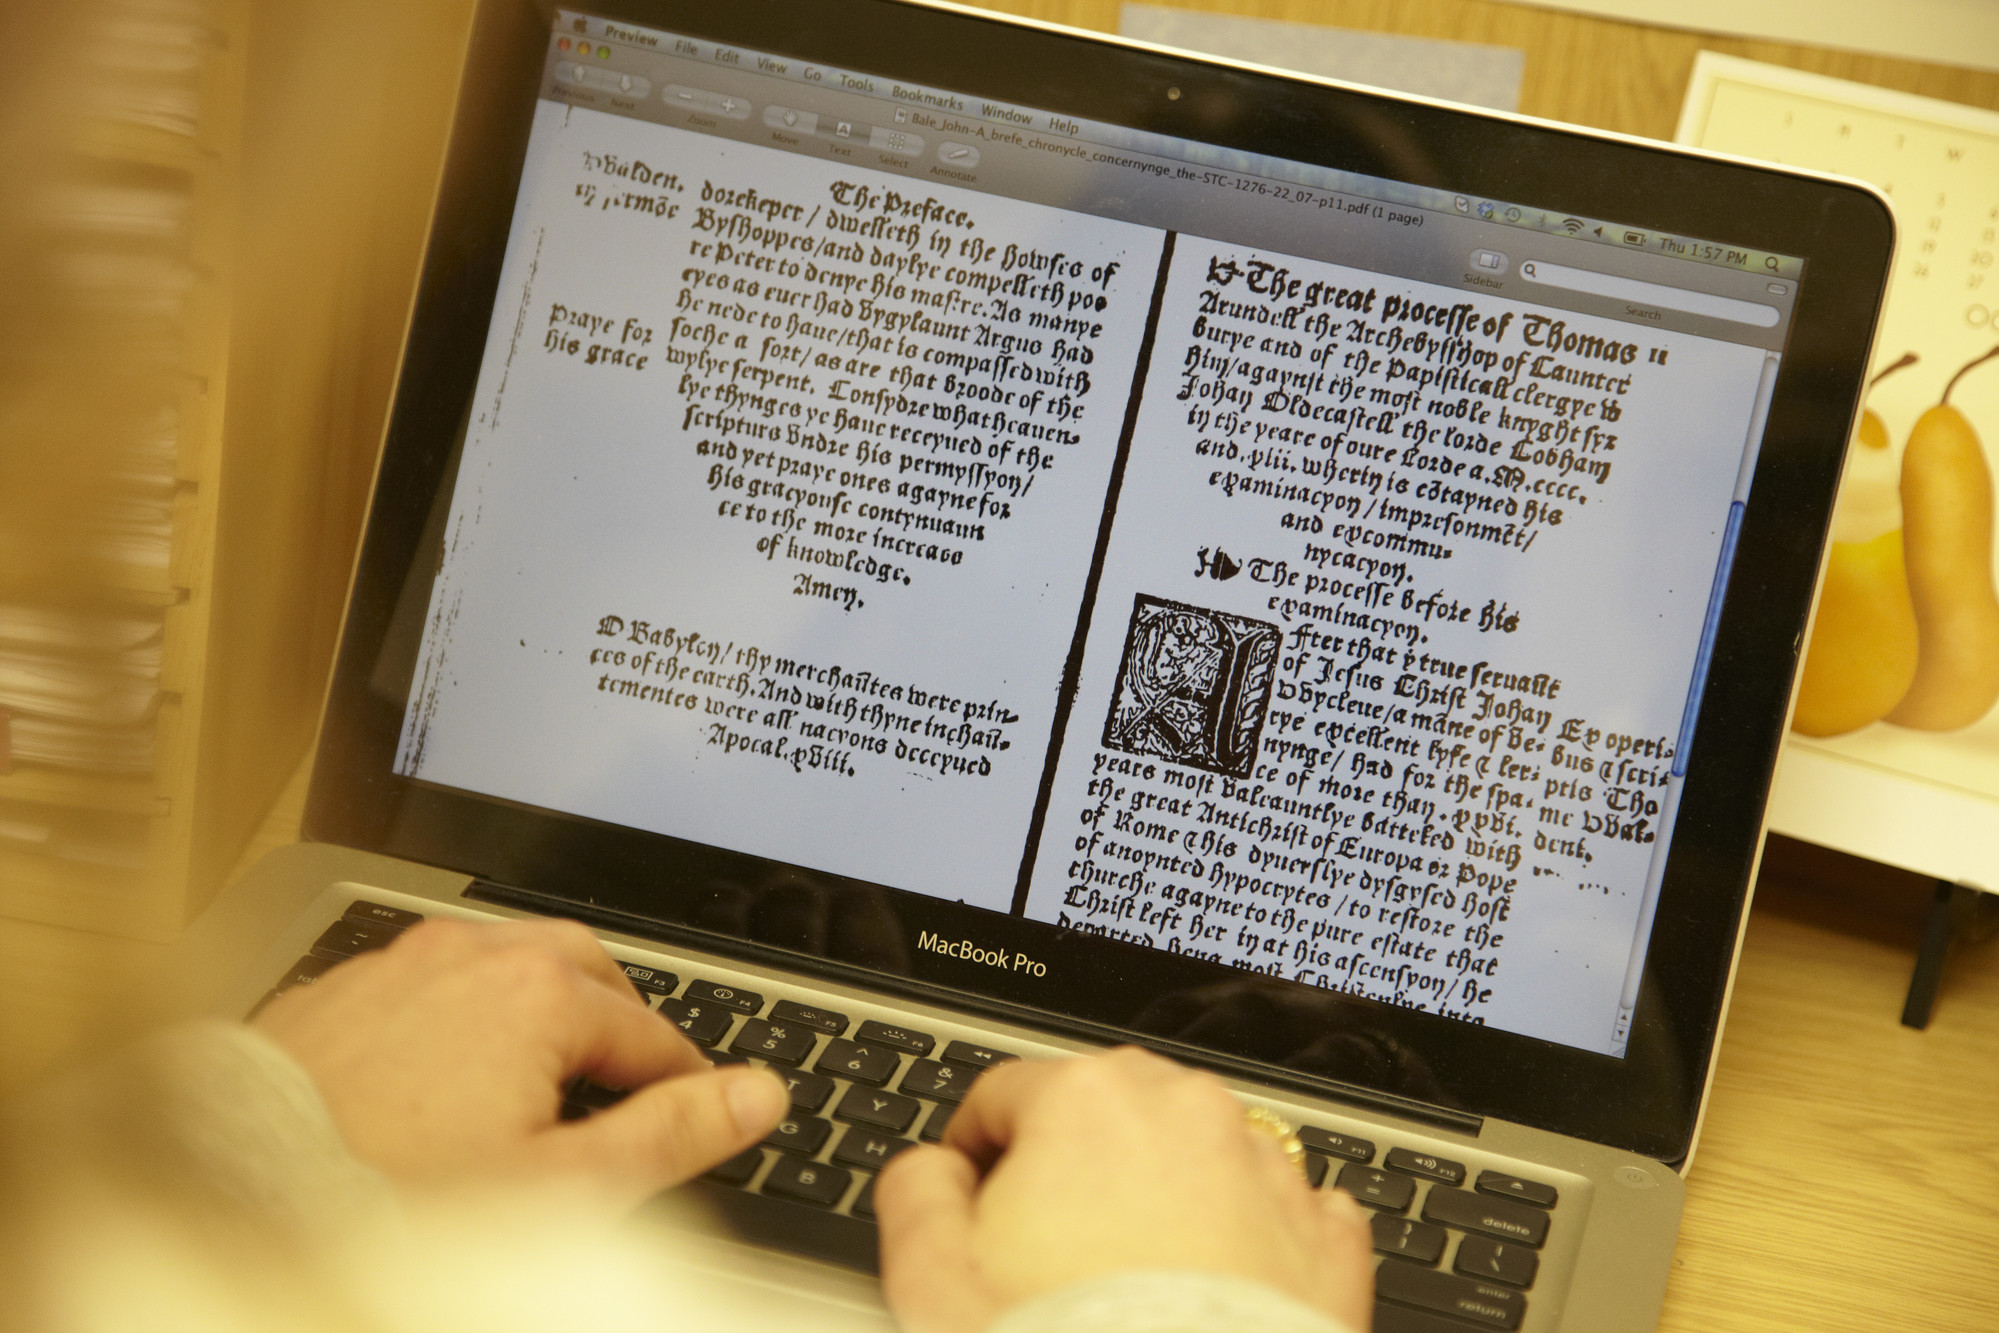 Preview File Edit View Go Tools Bookmarks Window Help
Thu 1:57 PM
Bale_John-A_brefe_chronycle_concernynge_the-STC-1276-22_07-p11.pdf (1 page)
Previous Next Zoom Move Text Select Annotate Sidebar Search
The Preface.
dorekeper / dwelleth in the howses of
Byshoppes/and daylye compelleth poo
re Peter to denye his mastre. As manye
eyes as euer had vygylaunt Argus had
he nede to haue/that is compassed with
soche a sort/ as are that broode of the
wylye serpent. Consydre what heauen-
lye thynges ye haue receyued of the
scripturs vndre his permyssyon/
and yet praye ones agayne for
his gracyouse contynuaun
ce to the more increase
of knowledge.
Amen.
Walden.
Praye for
his grace
O Babylon/ thy merchaũtes were prin-
ces of the earth. And with thyne inchaũ-
tementes were all nacyons deceyued
Apocal. xviii.
The great processe of Thomas
Arundell the Archebysshop of Caunter
burye and of the Papisticall clergye w
him/agaynst the most noble knyght syr
Johan Oldecastell the lorde Cobham
in the yeare of oure Lorde a.M.cccc.
and.xiii. wherin is cõtayned his
examinacyon / impresonmẽt/
and excommu-
nycacyon.
The processe before his
examinacyon.
After that ẏ true seruaũt
of Jesus Christ Johan
Wycleue/a mãne of ve-
rye excellent lyfe & ler-
nynge/ had for the spa-
ce of more than. xxvi.
years most valeauntlye batteled with
the great Antichrist of Europa or Pope
of Rome & his dyuerslye dysgysed host
of anoynted hypocrytes / to restore the
churche agayne to the pure estate that
Christ left her in at his ascensyon/ he
departed hens most Christenlye into
Ex operi-
bus & scri-
ptis Tho
me Wal-
dent.
MacBook Pro
esc F3 F4 F5 F6 F11 F12
$ 4 % 5 ^ 6 & 7 + = delete
T Y
G H enter return
B